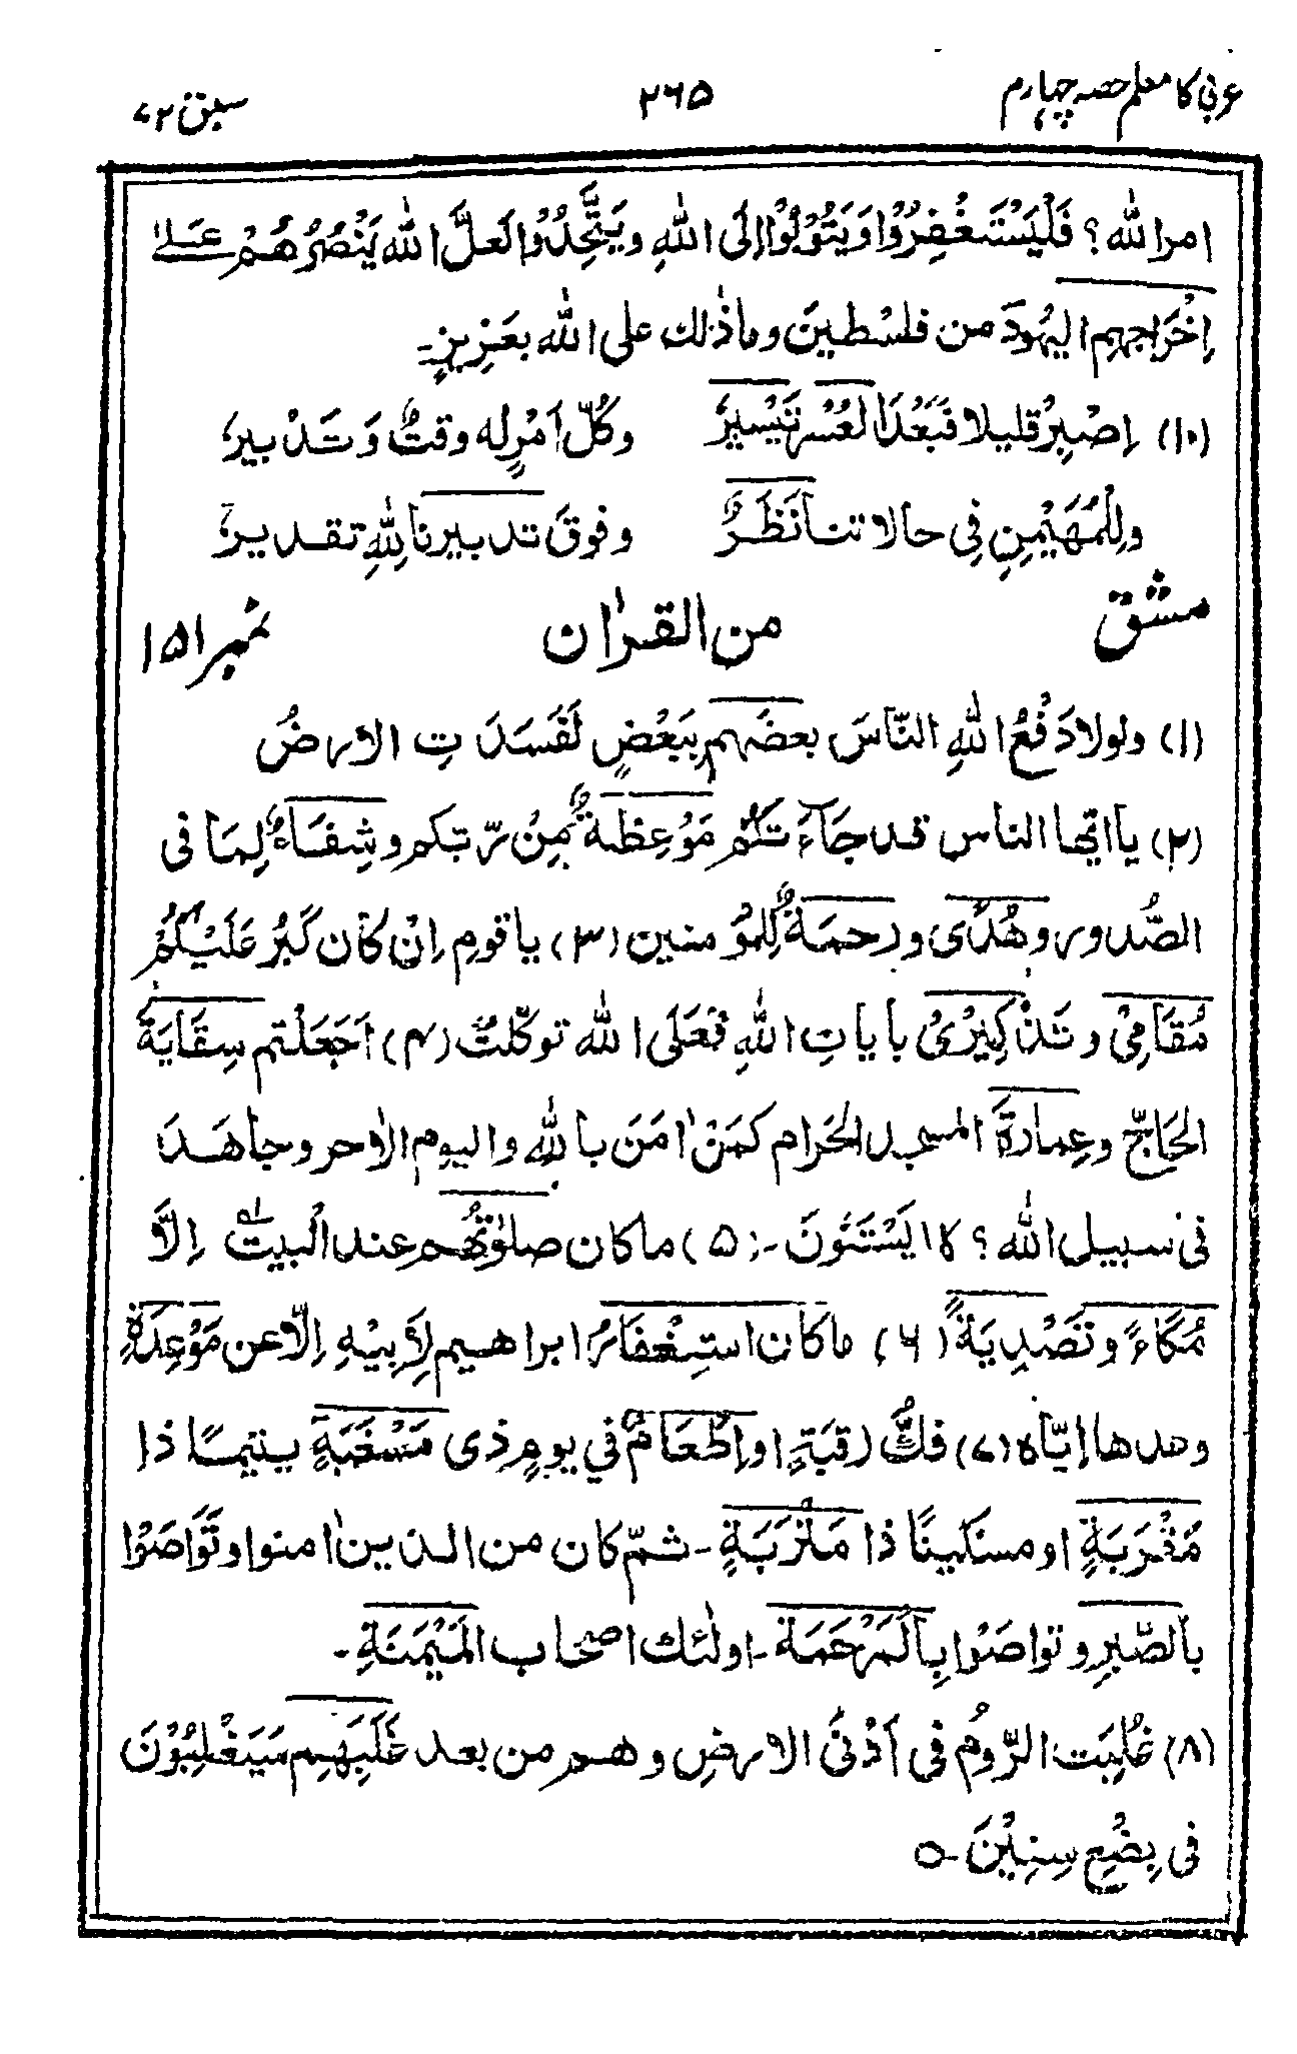 عربی کا معلم حصہ چہارم ۲۶۵ سبق ۷۲
امر الله؟ فَلْيَسْتَغْفِرُوْا وَيَتُوْبُوْا إِلَى اللهِ ويَتَّحِدُوْا لَعلَّ الله يَنْصُرُهُمْ عَلىٰ
اِخْرَاجِهِم اليهُودَ من فلسْطينَ وماذٰلك على الله بعَزِيزٍ۔
(۱۰) اِصْبِرْ قليلا فبَعْدَ العُسْرِ تَيْسِيرٌ وكُلّ اَمْرٍ له وقتٌ وَ تَدْبيرٌ
وللْمُهَيْمِنِ فِي حالاتنا نَظَرٌ وفوقَ تدبيرنا لِلّٰهِ تقديرٌ
مشق من القرٰان نمبر ۱۵۱
(۱) ولولا دَفْعُ اللهِ النّاسَ بعضَهم بِبَعْضٍ لَفَسَدَتِ الارضُ
(۲) يا ايّها الناس قد جَآءَتْكُم مَوْعِظةٌ مِنْ رّبّكم وشِفَاءٌ لِمَا فى
الصُّدور وهُدًى ورحمَةٌ لِلْمُؤمنين (۳) يا قومِ اِنْ كَان كَبُرَ عَلَيْكُمْ
مُقَامِيْ و تَذْكِيْرِيْ بأياتِ اللهِ فَعَلَى الله توكّلتُ (۴) اَجَعَلْتم سِقَايَةَ
الحَاجّ وعِمارةَ المسجد الحَرام كمَنْ اٰمَنَ بالله واليوم الاٰخر وجاهَدَ
فى سبيل الله؟ لا يَسْتَوُونَ۔ (۵) ما كان صلوٰتُهُم عند الْبيتِ اِلَّا
مُكَاءً وتَصْدِيَةً (۶) ما كان استِغْفَارُ ابراهيم لِاَبِيْهِ اِلّا عن مَوْعِدَةٍ
وعدها اِيّاه (۷) فكُّ رقبَةٍ او اِطْعَامٌ في يومٍ ذى مَسْغَبَةٍ يتيمًا ذا
مَقْرَبَةٍ او مسكينًا ذا مَتْرَبَةٍ۔ ثمّ كان من الذين اٰمنوا وتَوَاصَوْا
بالصّبرِ وتواصَوْا بِالْمَرْحَمَة۔ اولٰئك اصحاب المَيْمَنَةِ۔
(۸) غُلِبَت الرّومُ فى اَدْنَى الارضِ وهم من بعد غَلَبِهِم سَيَغْلِبُوْنَ
فى بِضْعِ سِنِيْنَ۔o